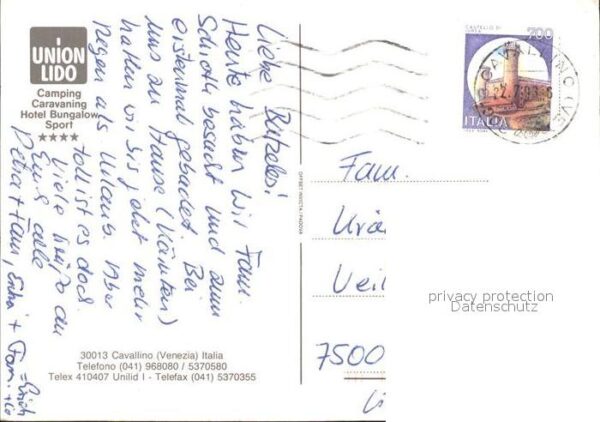 UNION
LIDO
Camping
Caravaning
Hotel Bungalow
Sport
★★★★
Liebe
Heute haben wir Fam.
besucht und zum
erstenmal gebadet. Bei
uns zu Hause (Kärnten)
hatten wir bis jetzt mehr
Regen als Urlaub. Aber
toll ist es doch.
Viele Grüße an
Euch alle
Petra + Fam,
+ Fam.
30013 Cavallino (Venezia) Italia
Telefono (041) 968080 / 5370580
Telex 410407 Unilid I - Telefax (041) 5370355
OFFSET INVICTA - PADOVA
CASTELLO DI
700
ITALIA
CAVALLINO (VE)
22.7.93
Fam.
Veil
7500
privacy protection
Datenschutz